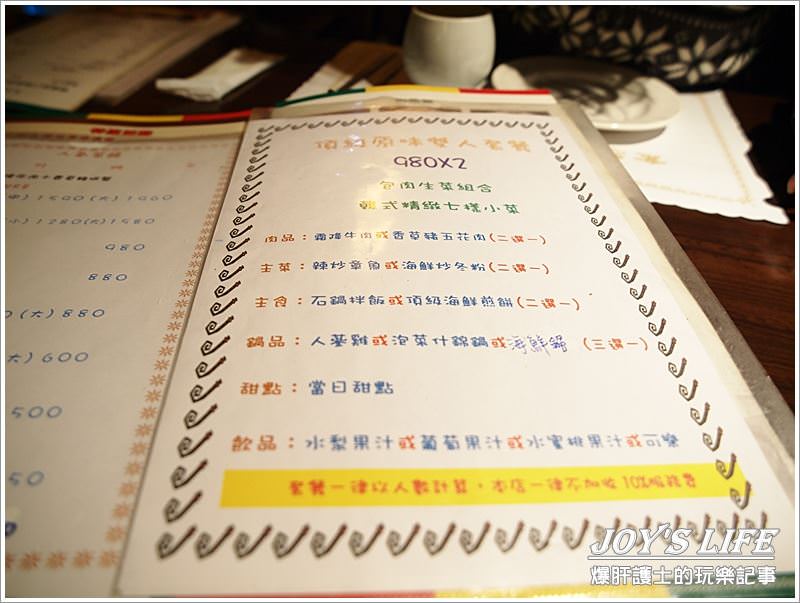 頂級原味雙人套餐
980X2
包肉生菜組合
韓式精緻七樣小菜
肉品：霜降牛肉或香草豬五花肉(二選一)
主菜：辣炒章魚或海鮮炒冬粉(二選一)
主食：石鍋拌飯或頂級海鮮煎餅(二選一)
鍋品：人蔘雞或泡菜什錦鍋或海鮮鍋 (三選一)
甜點：當日甜點
飲品：水梨果汁或葡萄果汁或水蜜桃果汁或可樂
套餐一律以人頭計算，本店一律加10%服務費
(小)1280(大)1580
980
880
(大)880
(大)600
500
50
JOY'S LIFE
爆肝護士的玩樂記事